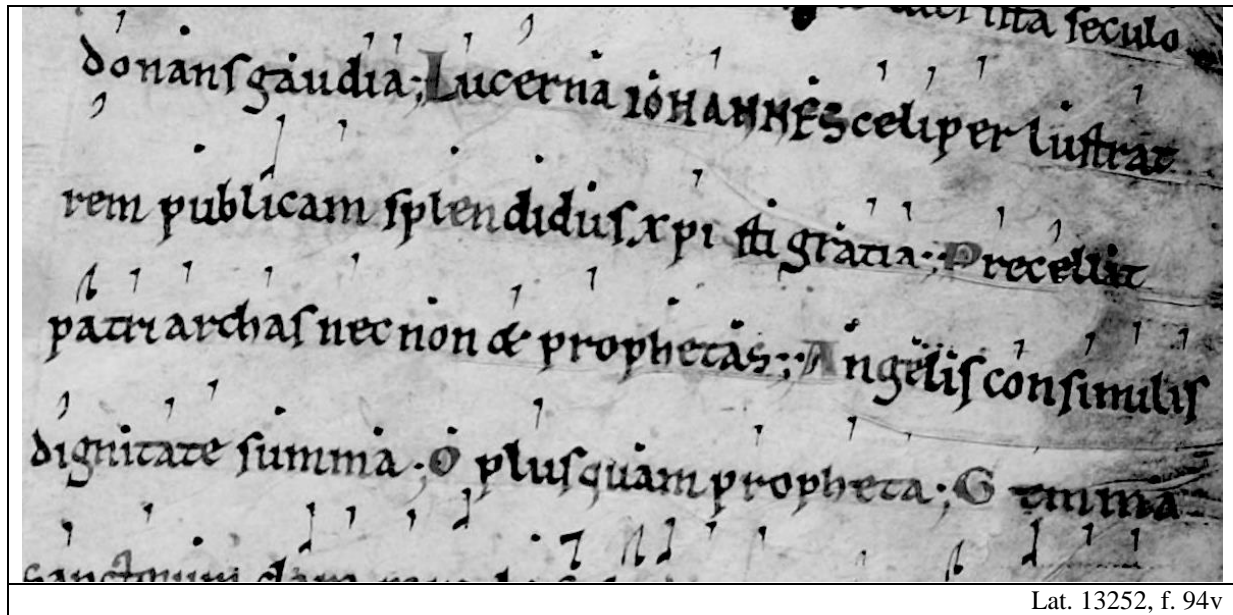 seculo
donans gaudia; Lucerna IOHANNES celi perlustrat
rem publicam splendidus xpi sti gratia; Precellit
patriarchas nec non & prophetas; Angelis consimilis
dignitate summa; O plusquam propheta; Gemma
Lat. 13252, f. 94v